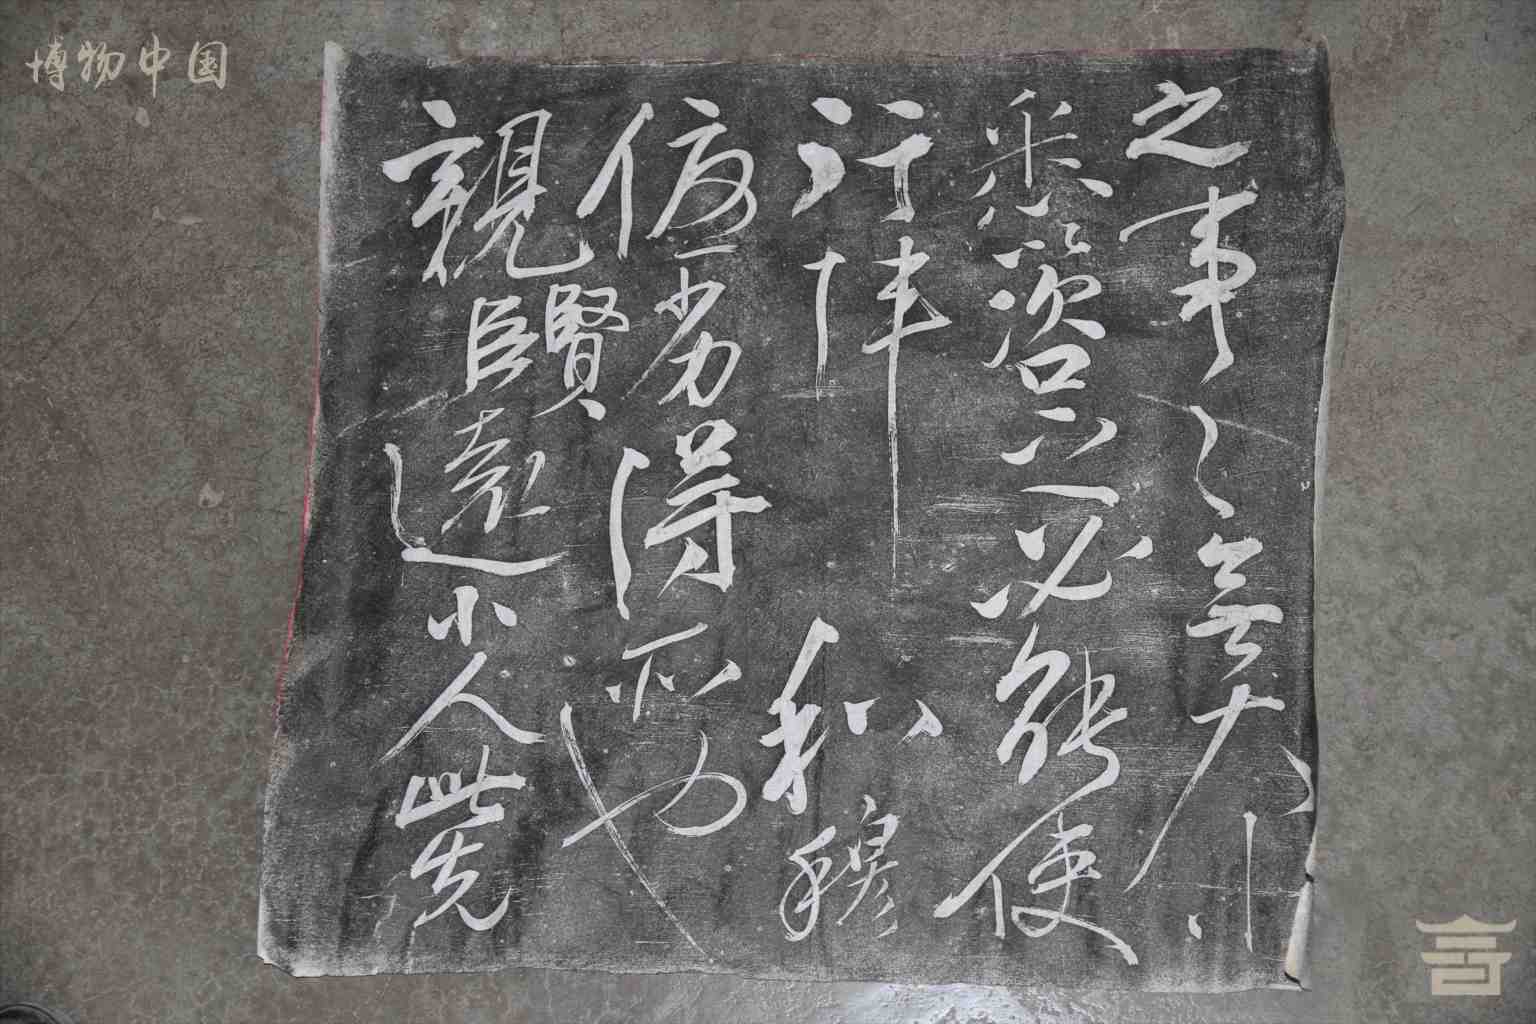 博物中国
之事〻無大小
悉以咨之必能使
行陣和穆
優劣得所也
親賢臣遠小人此先